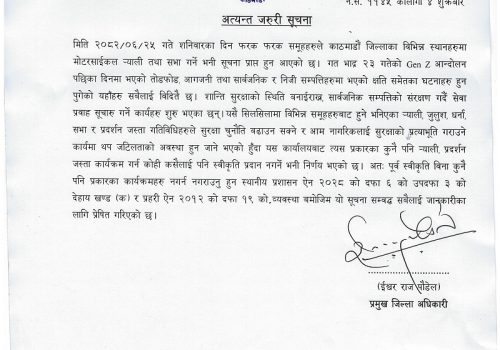 न.सं. ११४५ कौलागा ४ शुक्रबार
अत्यन्त जरुरी सूचना
मिति २०८२/०६/२५ गते शनिवारका दिन फरक फरक समूहहरुले काठमाडौं जिल्लाका विभिन्न स्थानहरुमा
मोटरसाईकल र्‍याली तथा सभा गर्ने भनी सूचना प्राप्त हुन आएको छ। गत भाद्र २३ गतेको Gen Z आन्दोलन
पछिका दिनमा भएको तोडफोड, आगजनी तथा सार्वजनिक र निजी सम्पत्तिहरुमा भएको क्षति समेतका घटनाहरु हुन
पुगेको यहाँहरु सबैलाई विदितै छ। शान्ति सुरक्षाको स्थिति वनाईराख्न, सार्वजनिक सम्पत्तिको संरक्षण गर्दै सेवा
प्रवाह सूचारु गर्ने कार्यहरु शुरु भएका छन्। यसै सिलसिलामा विभिन्न समूहहरुबाट हुने भनिएका र्‍याली, जुलुश, धर्ना,
सभा र प्रदर्शन जस्ता गतिविधिहरुले सुरक्षा चुनौति बढाउन सक्ने र आम नागरिकलाई सुरक्षाको प्रत्याभूति गराउने
कार्यमा थप जटिलताको अवस्था हुन जाने भएको हुँदा यस कार्यालयबाट त्यस प्रकारका कुनै पनि र्‍याली, प्रदर्शन
जस्ता कार्यक्रम गर्न कोही कसैलाई पनि स्वीकृति प्रदान नगर्ने भनी निर्णय भएको छ। अतः पूर्व स्वीकृति बिना कुनै
पनि प्रकारका कार्यक्रमहरु नगर्न नगराउनु हुन स्थानीय प्रशासन ऐन २०२८ को दफा ६ को उपदफा ३ को
देहाय खण्ड (क) र प्रहरी ऐन २०१२ को दफा १९ को,व्यवस्था बमोजिम यो सूचना सम्बद्ध सबैलाई जानकारीका
लागि प्रेषित गरिएको छ।
(ईश्वर राज पौडेल)
प्रमुख जिल्ला अधिकारी